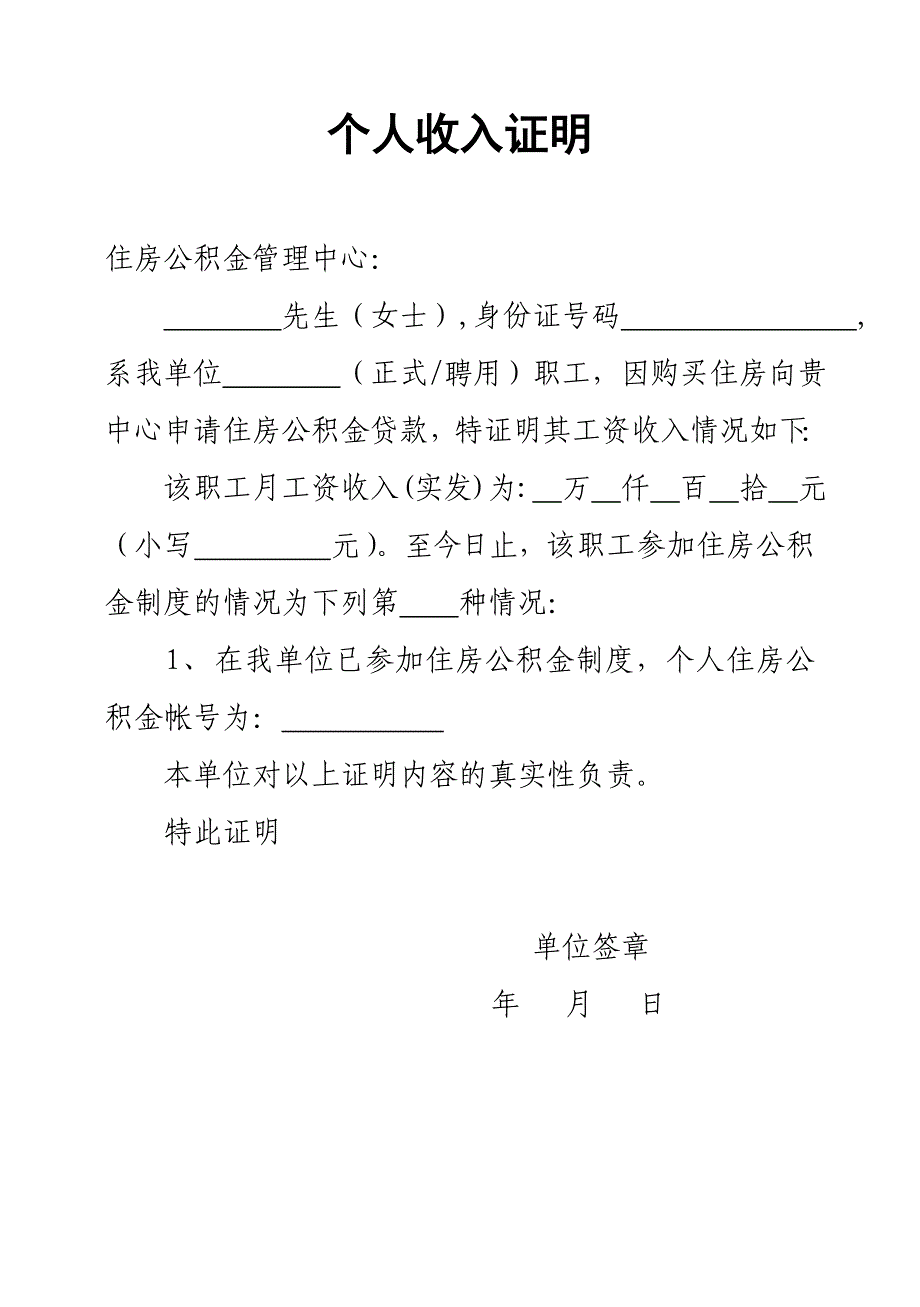 个人收入证明
住房公积金管理中心：
________先生（女士）,身份证号码________________,
系我单位________（正式/聘用）职工，因购买住房向贵
中心申请住房公积金贷款，特证明其工资收入情况如下：
该职工月工资收入(实发)为：__万__仟__百__拾__元
（小写_________元)。至今日止，该职工参加住房公积
金制度的情况为下列第____种情况：
1、在我单位已参加住房公积金制度，个人住房公
积金帐号为：___________
本单位对以上证明内容的真实性负责。
特此证明
单位签章
年 月 日